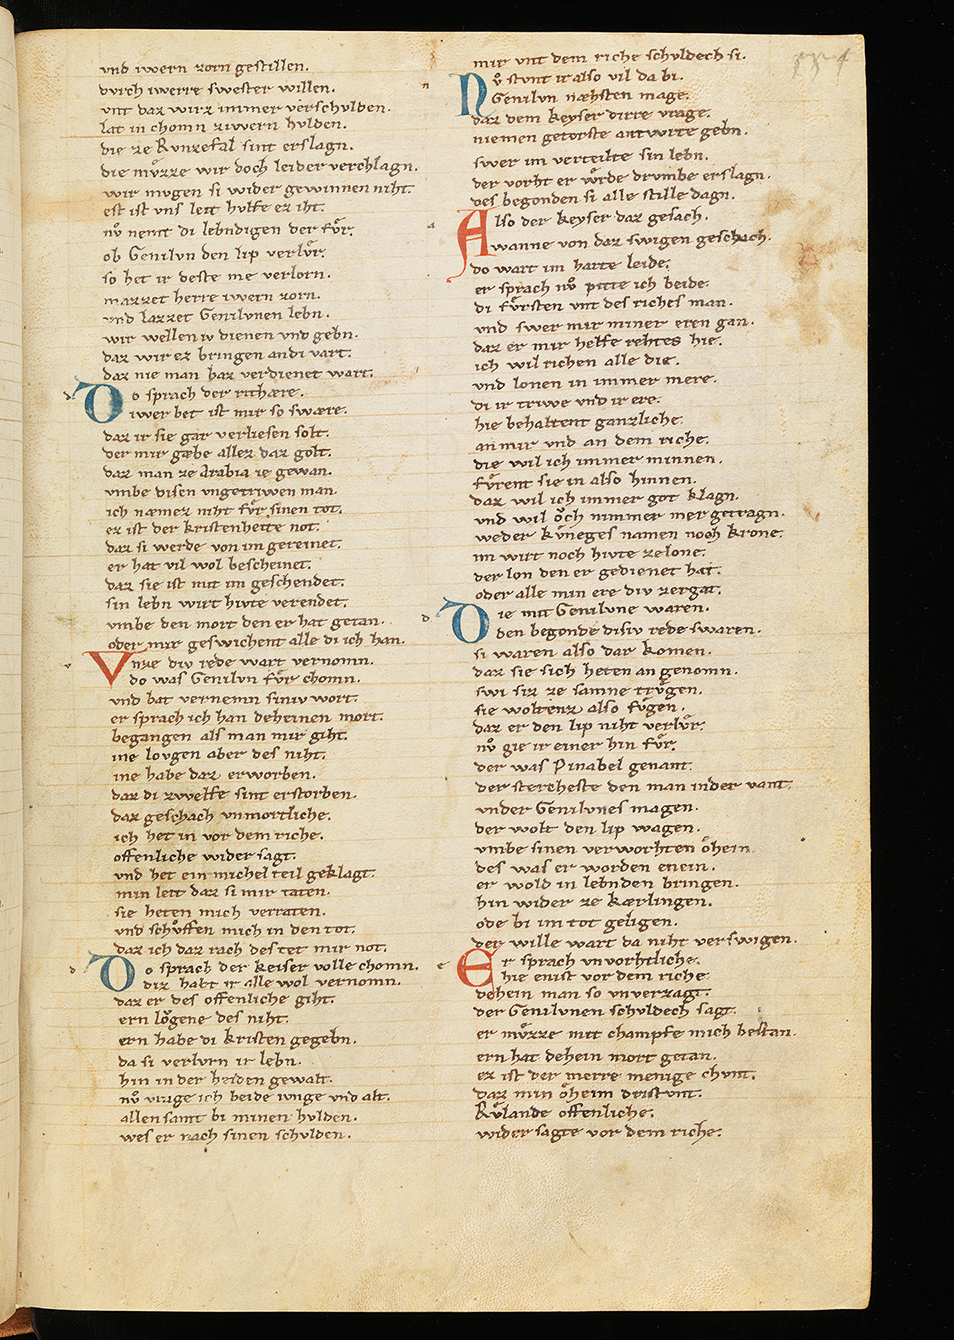 vnd iwern zorn gestillen.
durch iwerre swester willen.
vnt daz wirz immer verschulden.
lat in chomn ziwern hulden.
die ze Runzefal sint erslagn.
die muͤzze wir doch leider verchlagn.
wir mugen si wider gewinnen niht.
est ist vns leit hulfe ez iht.
nuͦ nemt di lebndigen der fuͤr.
ob Genilun den lip verluͤr.
so het ir beste me verlorn.
mazzet herre iwern zorn.
vnd lazzet Genilunen lebn.
wir wellen iv dienen vnd gebn.
daz wir ez bringen an di vart.
daz nie man baz verdienet wart.
Do sprach der richære.
iwer bet ist mir so swære.
daz ir sie gar verliesen solt.
der mir gæbe allez daz golt.
daz man ze Arabia ie gewan.
vmbe disen vngetriwen man.
ich næmez niht fuͤr sinen tot.
ez ist der kristenheite not.
daz si werde von im gereinet.
er hat vil wol bescheinet.
daz sie ist mit im geschendet.
sin lebn wirt hivte verendet.
vmbe den mort den er hat getan.
oder mir geswichent alle di ich han.
Vnze div rede wart vernomn.
do was Genilun fuͤr chomn.
vnd bat vernemn siniv wort.
er sprach ich han deheinen mort.
begangen als man mir giht.
ine lovgen aber des niht.
ine habe daz erworben.
daz di zwelfe sint erstorben.
daz geschach vnmortliche.
ich het in vor dem riche.
offenliche wider sagt.
vnd het ein michel teil geklagt.
min leit daz si mir taten.
sie heten mich verraten.
vnd schuͦffen mich in den tot.
daz ich daz rach des tet mir not.
Do sprach der keiser volle chomn.
diz habt ir alle wol vernomn.
daz er des offenliche giht.
ern loͤgene des niht.
ern habe di kristen gegebn.
da si verlurn ir lebn.
hin in der heiden gewalt.
nuͦ vrage ich beide iunge vnd alt.
allen samt bi minen hulden.
wes er nach sinen schulden.
mir vnt dem riche schuldech si.
Nuͦ stunt ir also vil da bi.
Genilvn næhsten mage.
daz dem keyser dirre vrage.
niemen getorste antwrte gebn.
swer im verteilte sin lebn.
der vorht er wuͤrde drumbe erslagn.
des begonden si alle stille dagn.
Also der keyser daz gesach.
wanne von daz swigen geschach.
do wart im harte leide.
er sprach nuͦ pitte ich beide.
di fuͤrsten vnt des riches man.
vnd swer mir miner eren gan.
daz er mir helfe rehtes hie.
ich wil richen alle die.
vnd lonen in immer mere.
di ir triwe vnd ir ere.
hie behaltent ganzliche.
an mir vnd an dem riche.
die wil ich immer minnen.
fuͤrent sie in also hinnen.
daz wil ich immer got klagn.
vnd wil oͤch nimmer mer getragn.
weder kuͤneges namen noch krone.
im wirt noch hivte ze lone.
der lon den er gedienet hat.
oder alle min ere div zergat.
Die mit Genilvne waren.
den begonde disiv rede swaren.
si waren also dar komen.
daz sie sich heten an genomn.
swi siz ze samne truͤgen.
sie woltenz also fuͤgen.
daz er den lip niht verluͤr.
nuͦ gie ir einer hin fuͤr.
der was Pinabel genant.
der stercheste den man inder vant.
vnder Genilvnes magen.
der wolt den lip wagen.
vmbe sinen verworhten oͤhein
des was er worden enein.
er wold in lebnden bringen.
hin wider ze kærlingen.
ode bi im tot geligen.
der wille wart da niht verswigen.
Er sprach vnvorhtliche.
hie enist vor dem riche.
dehein man so vnverzagt.
der Genilvnen schuldech sagt.
er muͤzze mit champfe mich bestan.
ern hat dehein mort getan.
ez ist der merre menige chunt.
daz min oͤheim dristunt.
Ruͤlande offenliche.
wider sagte vor dem riche.